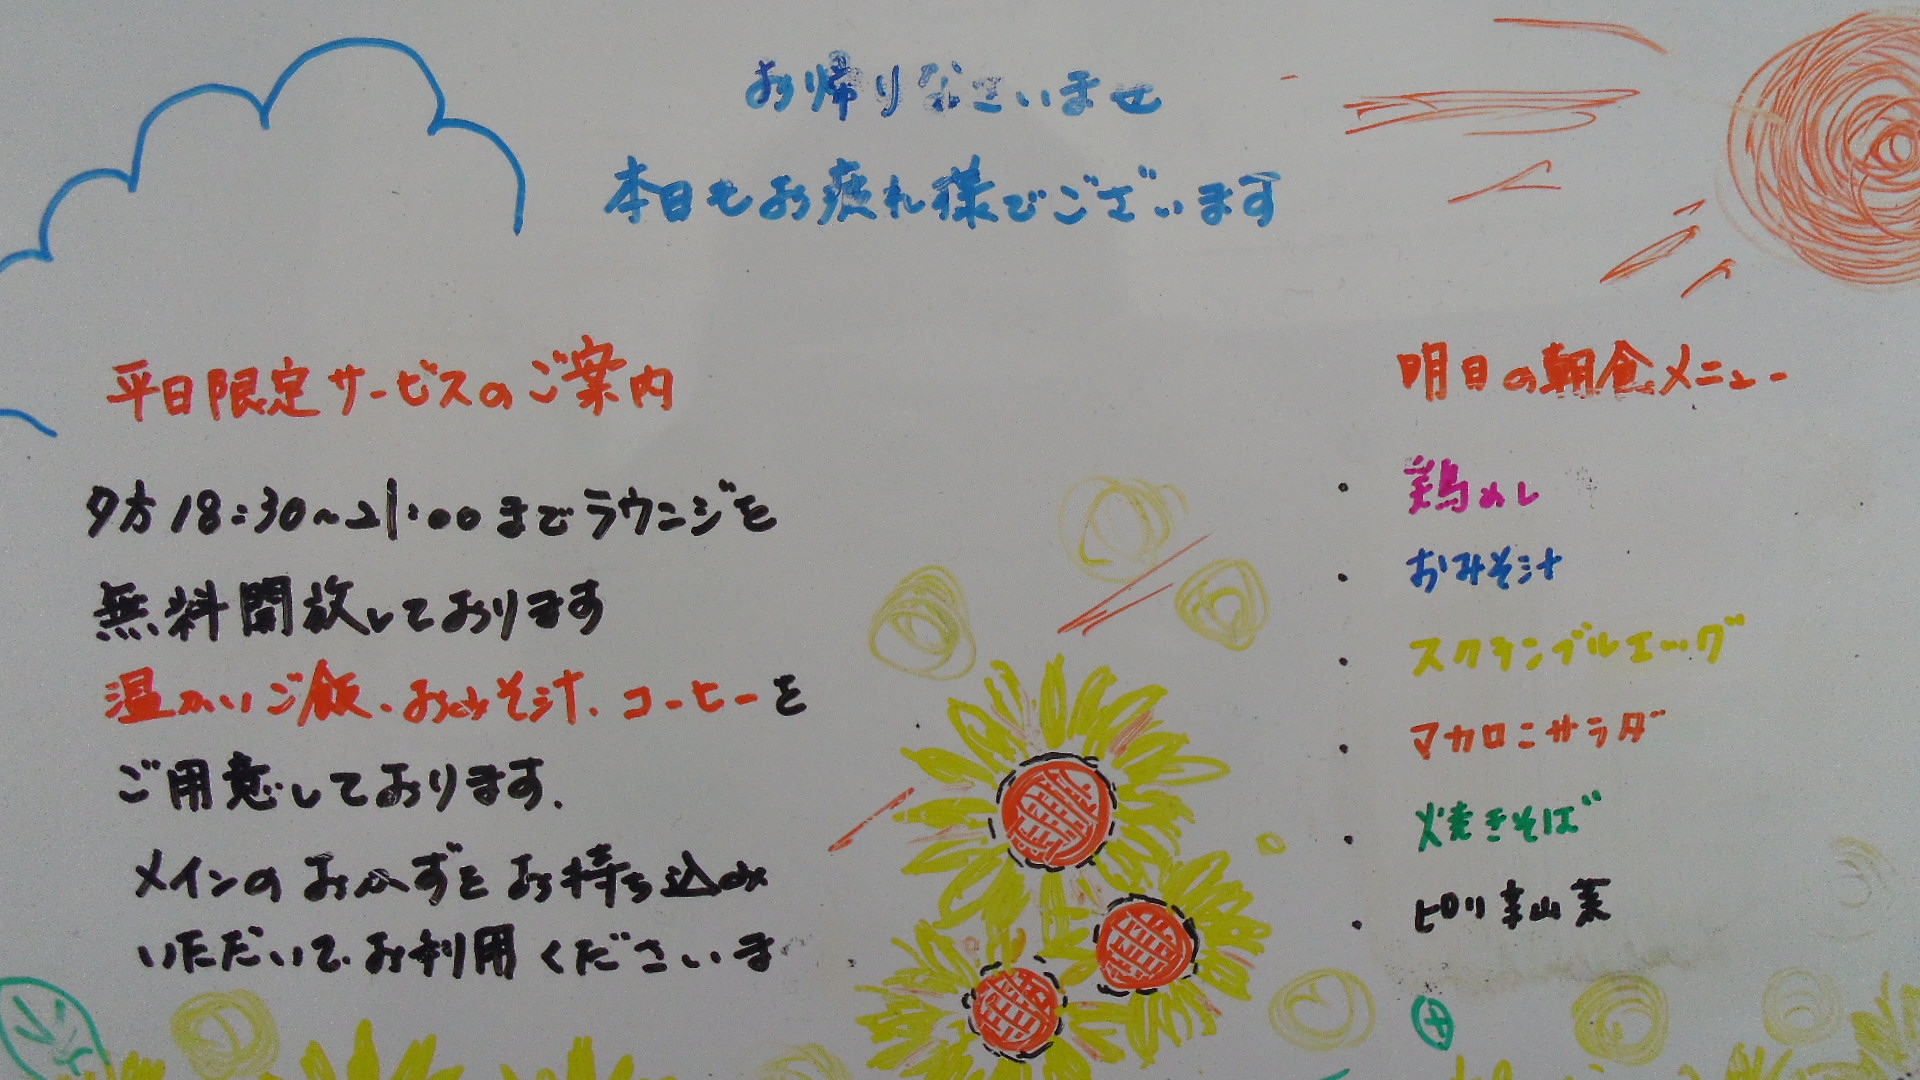 お帰りなさいませ
本日もお疲れ様でございます
平日限定サービスのご案内
夕方18:30~21:00までラウンジを
無料開放しております
温かいご飯、おみそ汁、コーヒーを
ご用意しております.
メインのおかずをお持ち込み
いただいて、お利用くださいま
明日の朝食メニュー
・鶏めし
・おみそ汁
・スクランブルエッグ
・マカロニサラダ
・焼きそば
・ピリ辛山菜